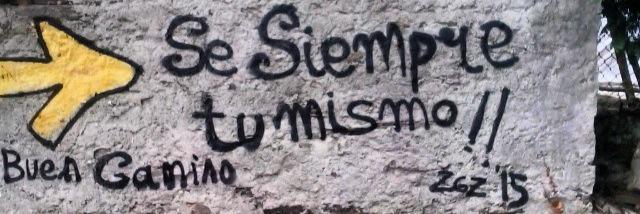 Se Siempre
tu mismo!!
Buen Camino
ZGZ '15